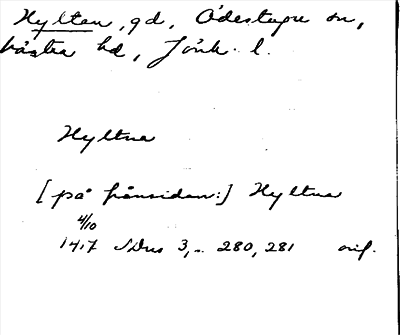 Hyltan, gd, Ödestugu sn,
Västra hd, Jönk. l.
Hyltna
[på frånsidan:] Hyltna
4/10
1417 SDns 3, 280, 281 orig.